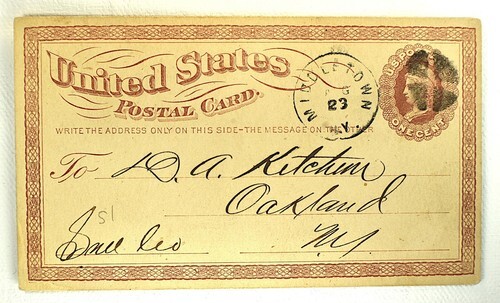 United States
POSTAL CARD.
U.S. POSTAGE
ONE CENT
MIDDLETOWN
23
N.Y.
WRITE THE ADDRESS ONLY ON THIS SIDE–THE MESSAGE ON THE OTHER
To D. A. Ketchum
Oakland
51
NY